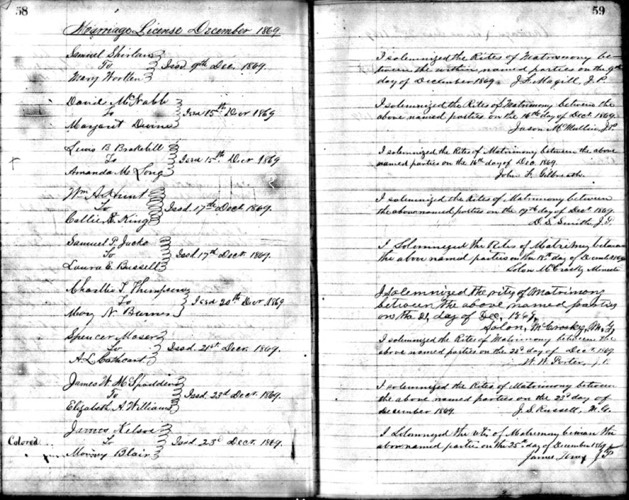 58
Marriage License December 1869
Samuel Ghirlan
To
Mary Woollen
Issd 9th Dec. 1869.
David McNabb
To
Margaret Dunn
Issd 15th Decr 1869
Lewis B Brakebill
To
Amanda M. Long
Issd 15th Decr 1869
Wm A Hunt
To
Collie King
Issd 17th Decr 1869.
Samuel P. Jacks
To
Laura E. Bussell
Issd 17th Decr 1869.
Charlles T. Thompson
To
Mary N. Burns
Issd 20th Decr 1869
Spencer Moser
To
A. L. Cathcart
Issd 21st Decr. 1869.
James W. McSpadden
To
Elizabeth A Williams
Issd 23d Decr 1869.
Colored
James Kelsoe
To
Blair
Issd 23d Decr 1869.
59
I solemnized the Rites of Matrimony be
tween the within named parties on the 9th
day of December 1869. J. L. Magill J. P.
I solemnized the Rites of Matrimony between the
above named parties on the 16th day of Decr. 1869.
Jason J.P.
I solemnized the Rites of Matrimony between the above
named parties on the 16th day of Dec. 1869.
John F.
I solemnized the Rites of Matrimony between
the above named parties on the 19th day of Decr. 1869.
Smith J.P.
I Solemnized the Rites of Matrimony between
the above named parties on the day of December
Solon McCrosky
I solemnized the rity of Matrimony
between the above named parties
on the 21, day of Dec, 1869,
Solon, McCrosky, M.G.
I solemnized the Rites of Matrimony between the
above named parties on the day of Decr 1869
W. W. Porter
I solemnized the Rites of Matrimony between
the above named parties on the 23d day of
december 1869. J. S. Russell, M. G.
I Solemnized the rites of Matrimony between the
above named parties on the 25th day of December 1869
James J P